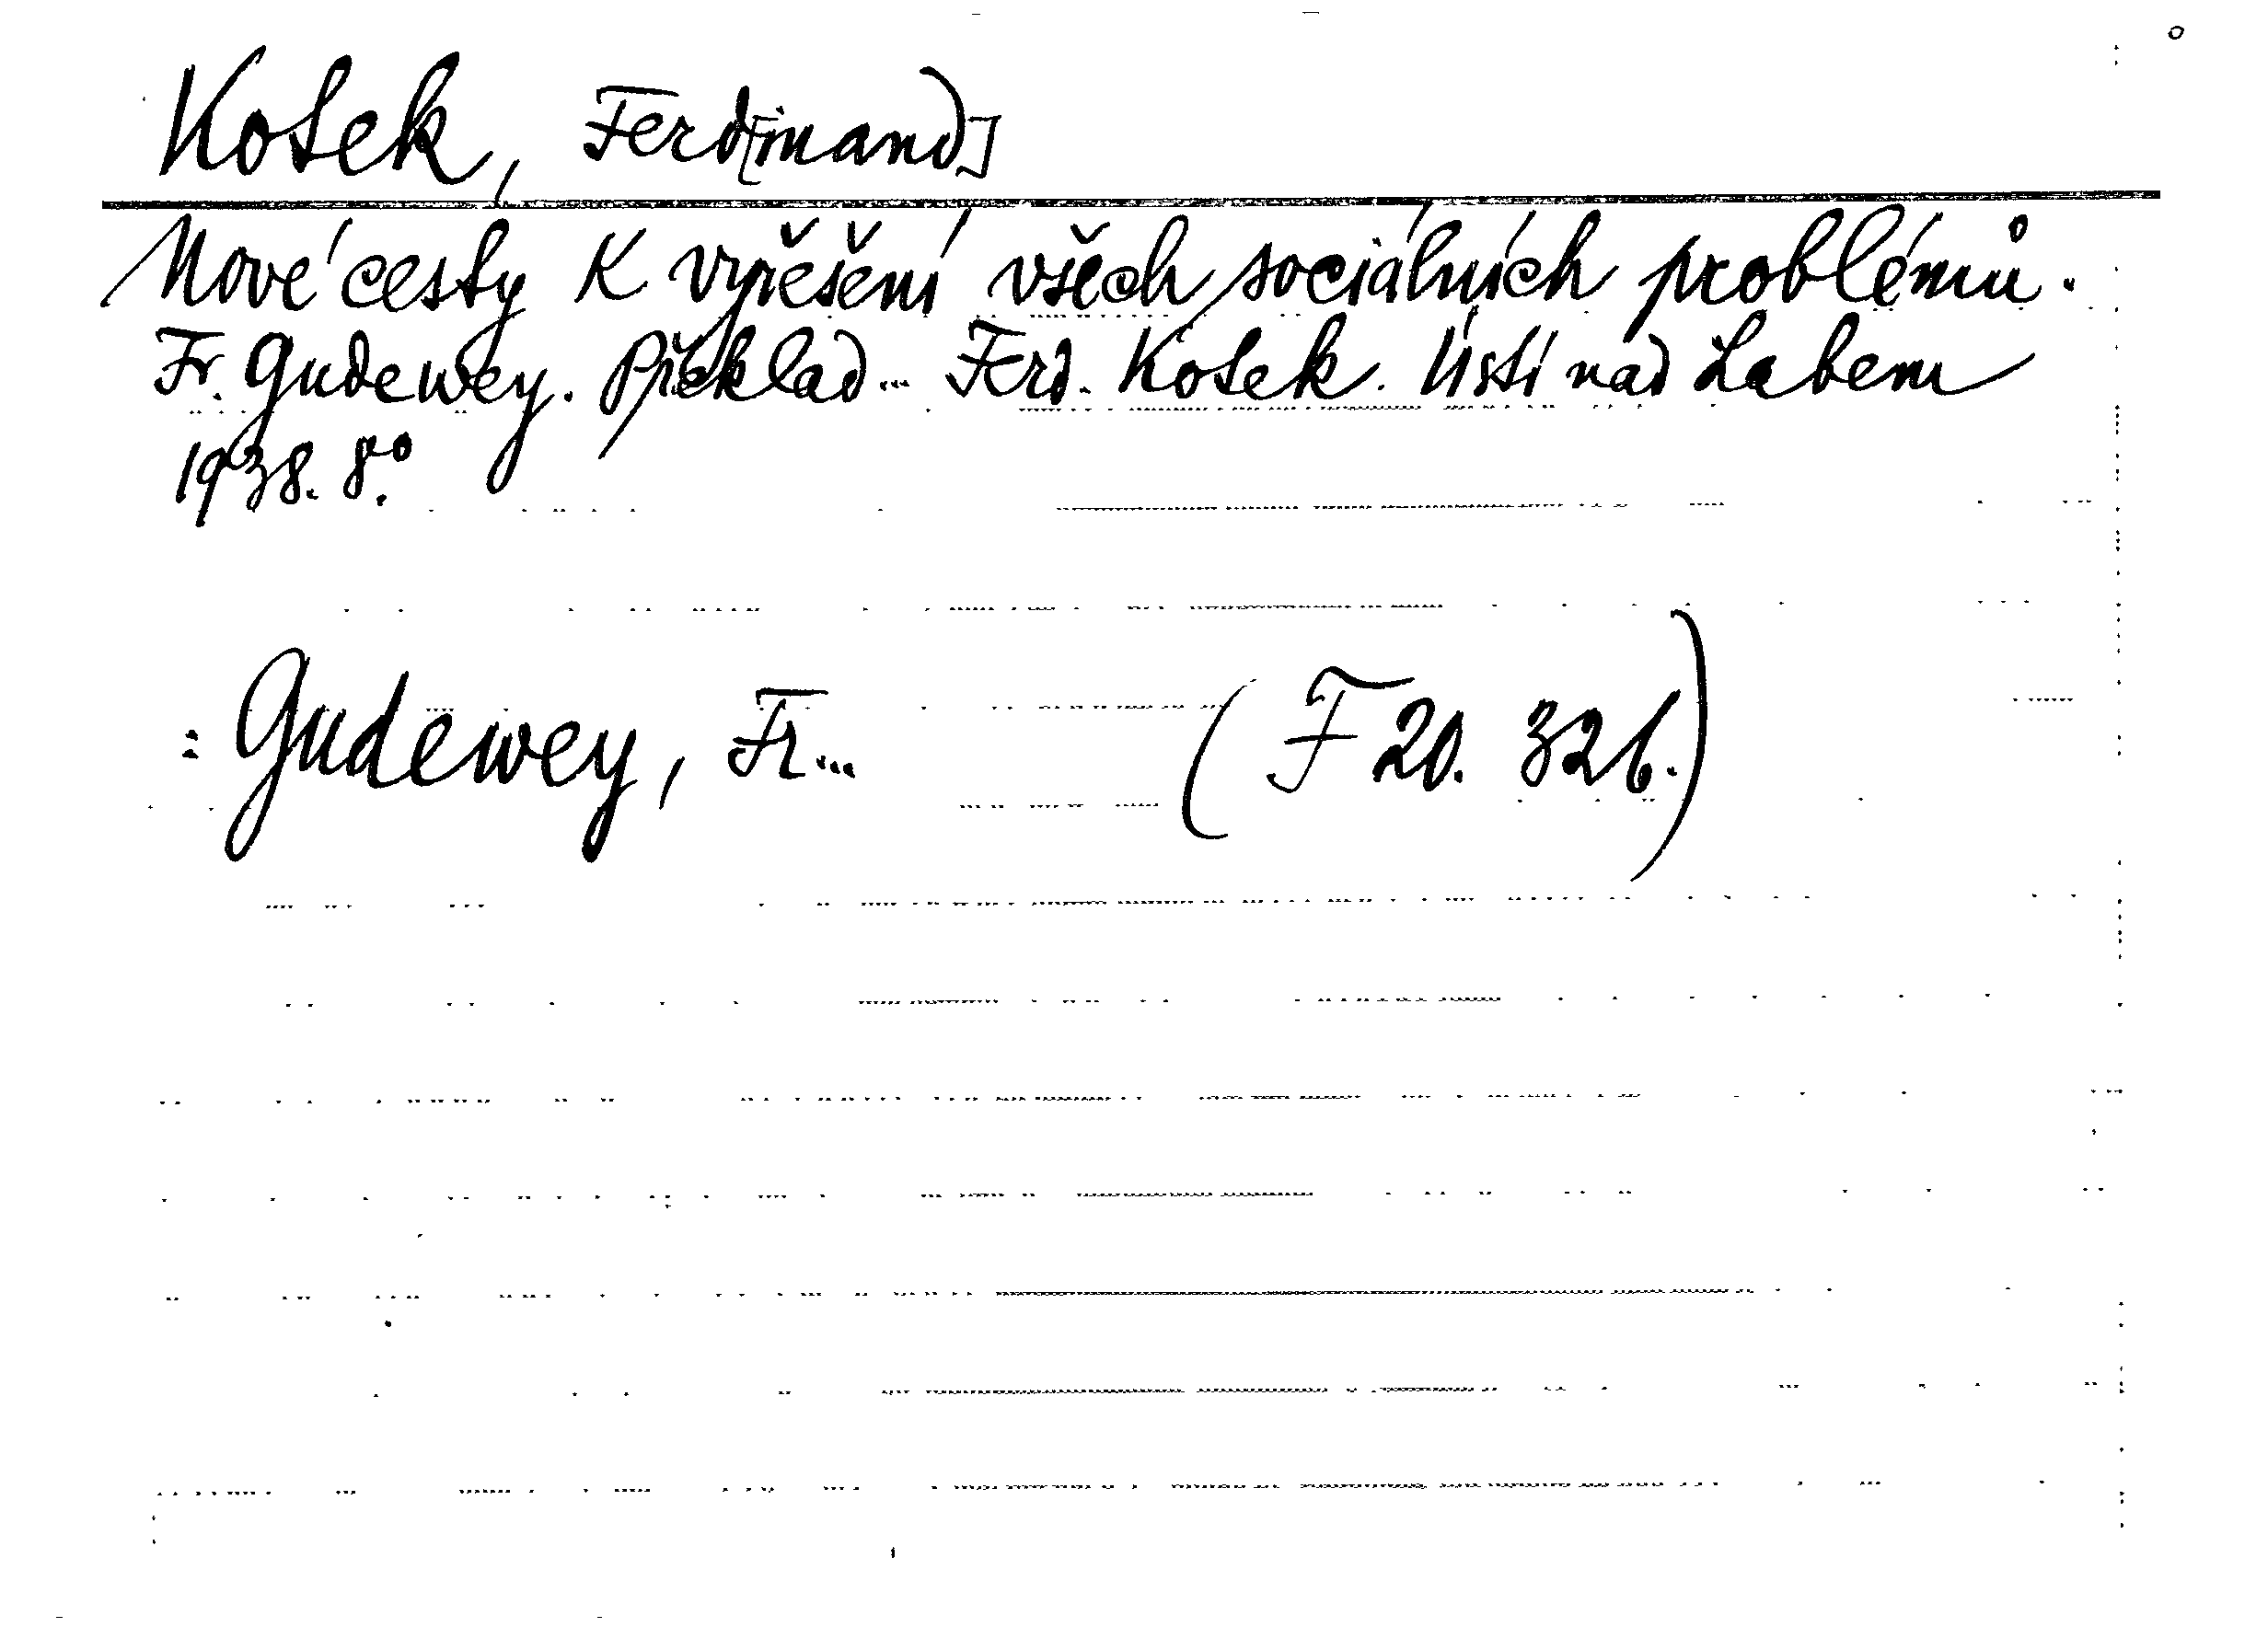 Kosek, Ferd[inand]
Nové cesty k vyřešení všech sociálních problémů.
Fr. Gudewey. Překlad... Ferd. Kosek. Ústí nad Labem
1938. 8°.
: Gudewey, Fr... (F 20. 326.)